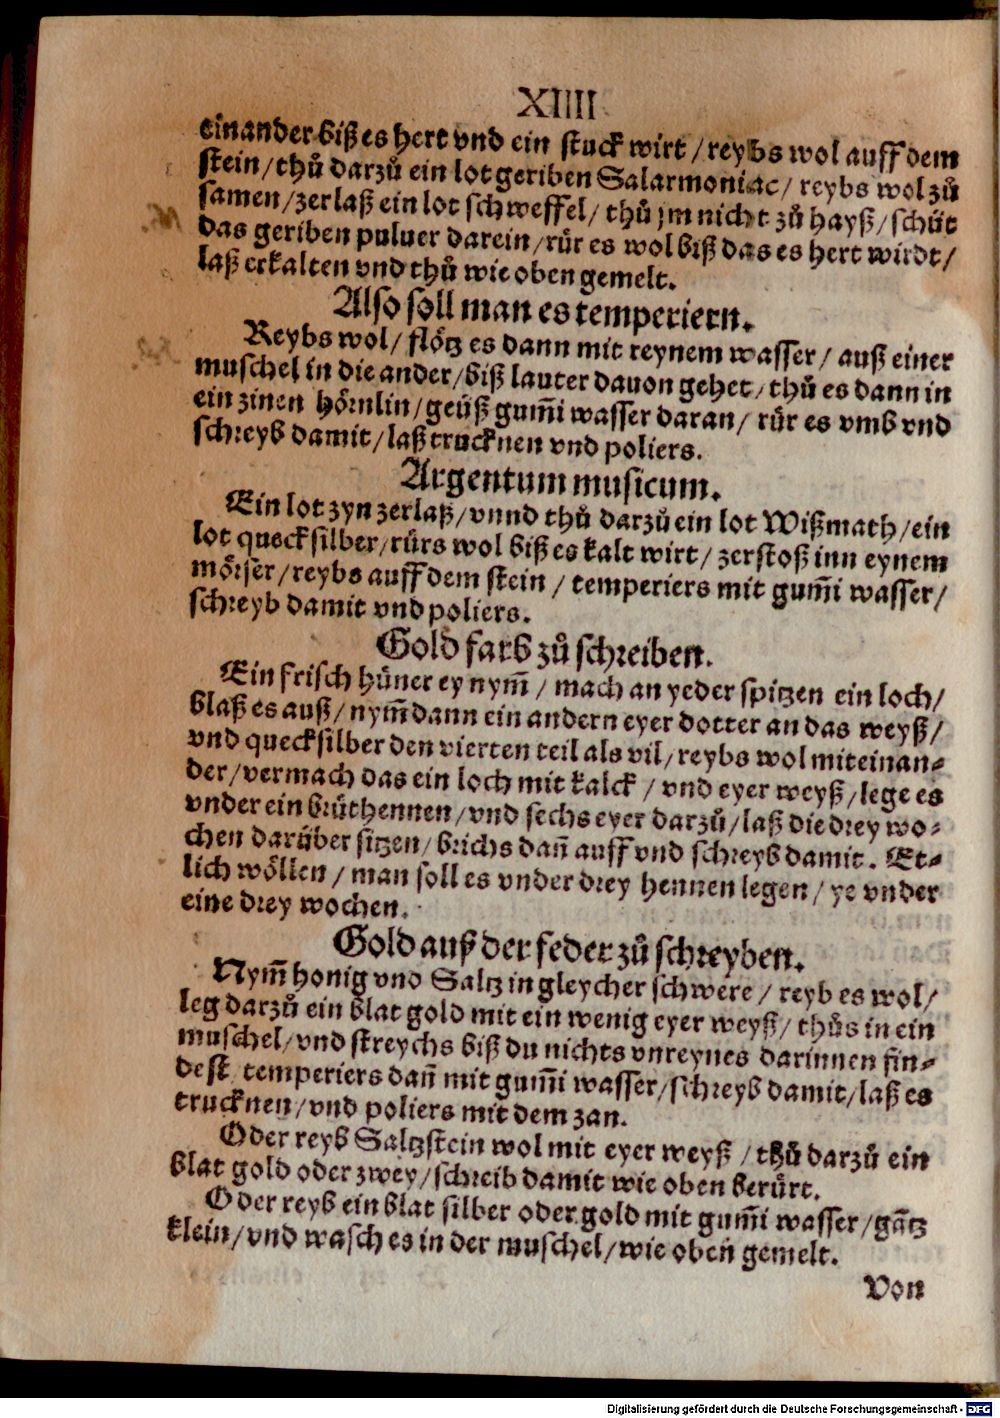 XIIII
einander biß es hert vnd ein stuck wirt / reybs wol auff dem
stein / thů darzů ein lot geriben Salarmoniac / reybs wol zů
samen / zerlaß ein lot schweffel / thů jm nicht zů hayß / schüt
das geriben puluer darein / rür es wol biß das es hert wirdt /
laß erkalten vnd thů wie oben gemelt.
Also soll man es temperiern.
Reybs wol / flötz es dann mit reynem wasser / auß einer
muschel in die ander / biß lauter dauon gehet / thů es dann in
ein zinen hörnlin / geüß gum̃i wasser daran / rür es vmb vnd
schreyb damit / laß trucknen vnd poliers.
Argentum musicum.
Ein lot zyn zerlaß / vnnd thů darzů ein lot Wißmath / ein
lot quecksilber / rürs wol biß es kalt wirt / zerstoß inn eynem
mörser / reybs auff dem stein / temperiers mit gum̃i wasser /
schreyb damit vnd poliers.
Gold farb zů schreiben.
Ein frisch hüner ey nym̃ / mach an yeder spitzen ein loch /
blaß es auß / nym̃ dann ein andern eyer dotter an das weyß /
vnd quecksilber den vierten teil als vil / reybs wol miteinan-
der / vermach das ein loch mit kalck / vnd eyer weyß / lege es
vnder ein brüthennen / vnd sechs eyer darzů / laß die drey wo-
chen darüber sitzen / brichs dañ auff vnd schreyb damit. Et-
lich wöllen / man soll es vnder drey hennen legen / ye vnder
eine drey wochen.
Gold auß der feder zů schreyben.
Nym̃ honig vnd Saltz in gleycher schwere / reyb es wol /
leg darzů ein blat gold mit ein wenig eyer weyß / thůs in ein
muschel / vnd streychs biß du nichts vnreynes darinnen fin-
dest temperiers dañ mit gum̃i wasser / schreyb damit / laß es
trucknen / vnd poliers mit dem zan.
Oder reyb Saltzstein wol mit eyer weyß / thů darzů ein
blat gold oder zwey / schreib damit wie oben berürt.
Oder reyb ein blat silber oder gold mit gum̃i wasser / gãtz
klein / vnd wasch es in der muschel / wie oben gemelt.
Von
Digitalisierung gefördert durch die Deutsche Forschungsgemeinschaft - DFG